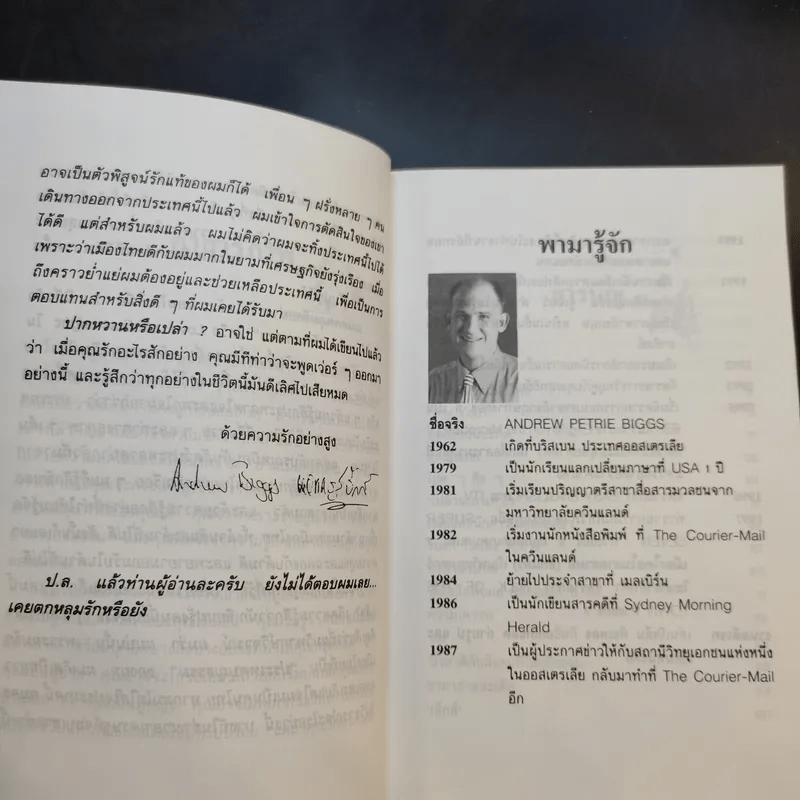 อาจเป็นตัวพิสูจน์รักแท้ของผมก็ได้ เพื่อน ๆ ฝรั่งหลาย ๆ คน
เดินทางออกจากประเทศนี้ไปแล้ว ผมเข้าใจการตัดสินใจของเขา
ได้ดี แต่สำหรับผมแล้ว ผมไม่คิดว่าผมจะทิ้งประเทศนี้ไปได้
เพราะว่าเมืองไทยดีกับผมมากในยามที่เศรษฐกิจยังรุ่งเรือง เมื่อ
ถึงคราวย่ำแย่ผมต้องอยู่และช่วยเหลือประเทศนี้ เพื่อเป็นการ
ตอบแทนสำหรับสิ่งดี ๆ ที่ผมเคยได้รับมา
ปากหวานหรือเปล่า ? อาจใช่ แต่ตามที่ผมได้เขียนไปแล้ว
ว่า เมื่อคุณรักอะไรสักอย่าง คุณมีทีท่าว่าจะพูดเว่อร์ ๆ ออกมา
อย่างนี้ และรู้สึกว่าทุกอย่างในชีวิตนี้มันดีเลิศไปเสียหมด
ด้วยความรักอย่างสูง
Andrew Biggs
ป.ล. แล้วท่านผู้อ่านละครับ ยังไม่ได้ตอบผมเลย...
เคยตกหลุมรักหรือยัง
พามารู้จัก
ชื่อจริง ANDREW PETRIE BIGGS
1962 เกิดที่บริสเบน ประเทศออสเตรเลีย
1979 เป็นนักเรียนแลกเปลี่ยนภาษาที่ USA 1 ปี
1981 เริ่มเรียนปริญญาตรีสาขาสื่อสารมวลชนจาก
มหาวิทยาลัยควีนแลนด์
1982 เริ่มงานนักหนังสือพิมพ์ ที่ The Courier-Mail
ในควีนแลนด์
1984 ย้ายไปประจำสาขาที่ เมลเบิร์น
1986 เป็นนักเขียนสารคดีที่ Sydney Morning
Herald
1987 เป็นผู้ประกาศข่าวให้กับสถานีวิทยุเอกชนแห่งหนึ่ง
ในออสเตรเลีย กลับมาทำที่ The Courier-Mail
อีก